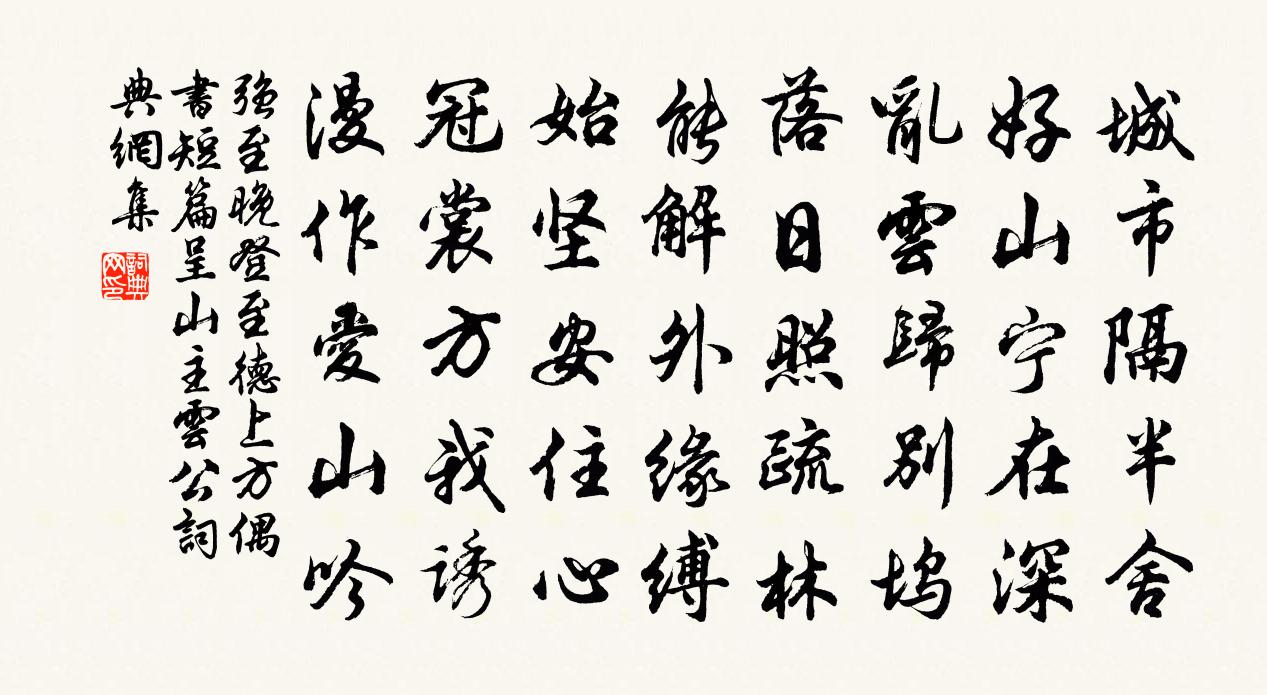 城市隔半舍
好山宁在深
亂雲歸別坞
落日照疏林
能解外缘缚
始坚安住心
冠裳方我诱
漫作愛山吟
强至晚登至德上方偶
書短篇呈山主雲公詞
典網集
詞典网印